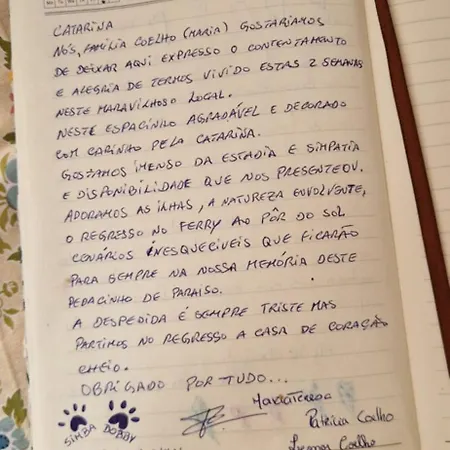 CATARINA
NÓS, FAMÍLIA COELHO (MARIA) GOSTARÍAMOS
DE DEIXAR AQUI EXPRESSO O CONTENTAMENTO
E ALEGRIA DE TERMOS VIVIDO ESTAS 2 SEMANAS
NESTE MARAVILHOSO LOCAL.
NESTE ESPACINHO AGRADÁVEL E DECORADO
COM CARINHO PELA CATARINA.
GOSTAMOS IMENSO DA ESTADIA E SIMPATIA
E DISPONIBILIDADE QUE NOS PRESENTEOU.
ADORAMOS AS ILHAS, A NATUREZA ENVOLVENTE,
O REGRESSO NO FERRY AO PÔR DO SOL
CENÁRIOS INESQUECÍVEIS QUE FICARÃO
PARA SEMPRE NA NOSSA MEMÓRIA DESTE
PEDACINHO DE PARAISO.
A DESPEDIDA É SEMPRE TRISTE MAS
PARTIMOS NO REGRESSO A CASA DE CORAÇÃO
CHEIO.
OBRIGADO POR TUDO...
Maria Teresa
Patrícia Coelho
SIMBA DOBBY
Coelho